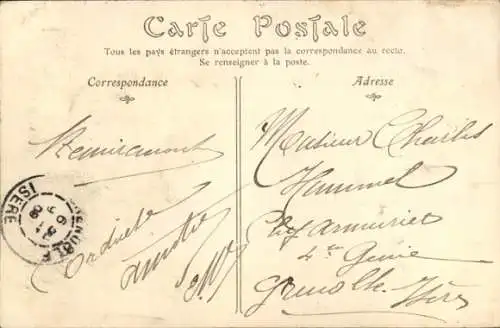 Carte Postale
Tous les pays étrangers n'acceptent pas la correspondance au recto.
Se renseigner à la poste.
Correspondance
Remiremont
Cordiale
amitié
Adresse
Monsieur Charles
Hammel
Chef armurier
4me Génie
Grenoble. Isère
GRENOBLE
ISÈRE